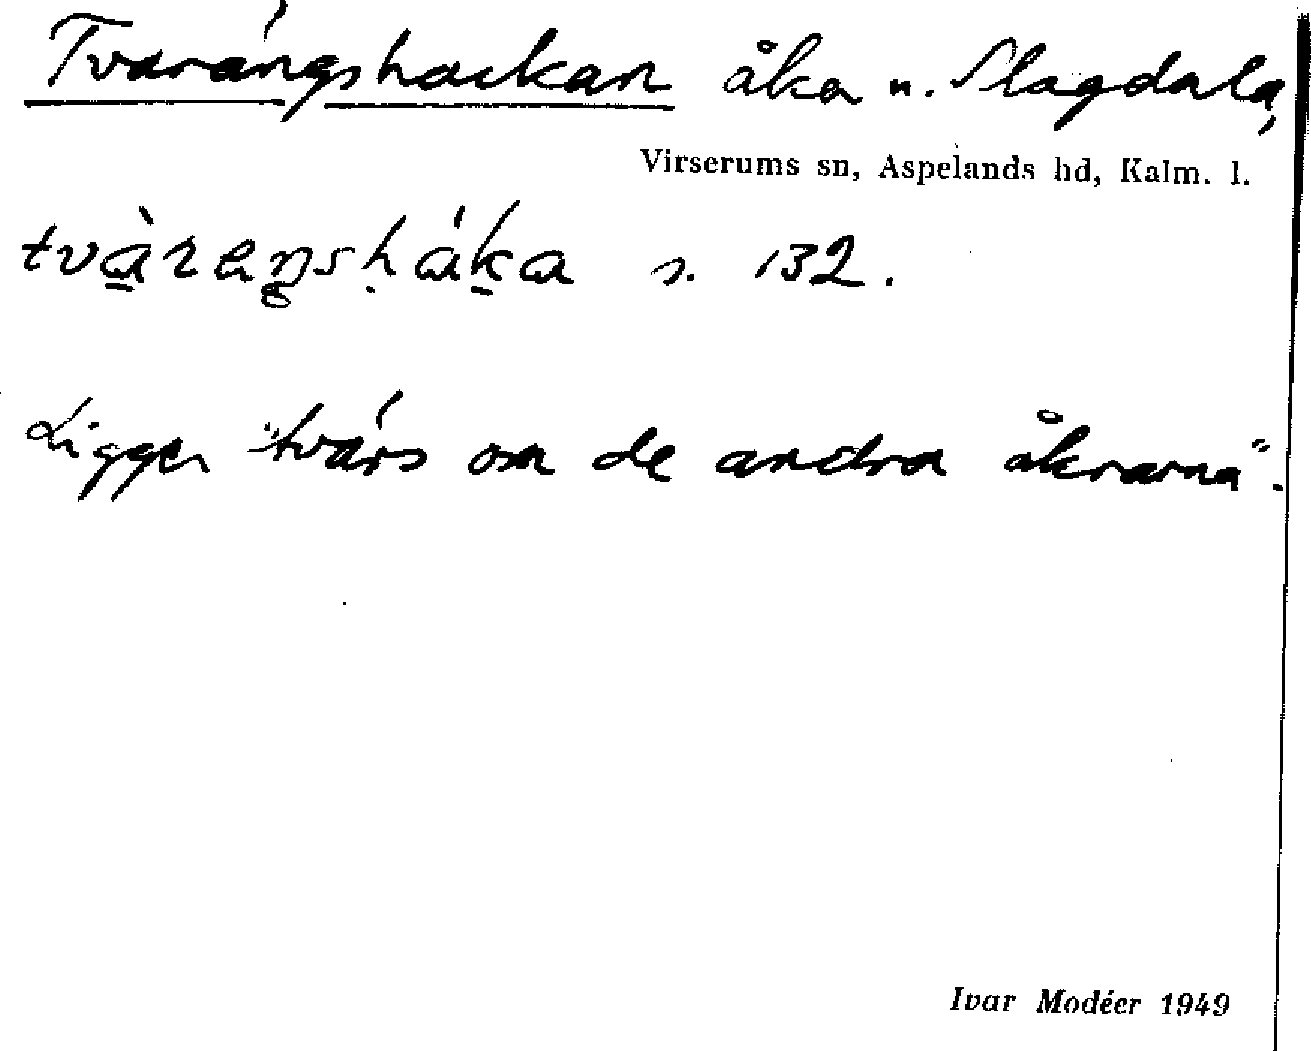 Tvarängshackan åker n. Slagdala,
Virserums sn, Aspelands hd, Kalm. l.
s. 132.
Ligger "tvärs om de andra åkrarna".
Ivar Modéer 1949